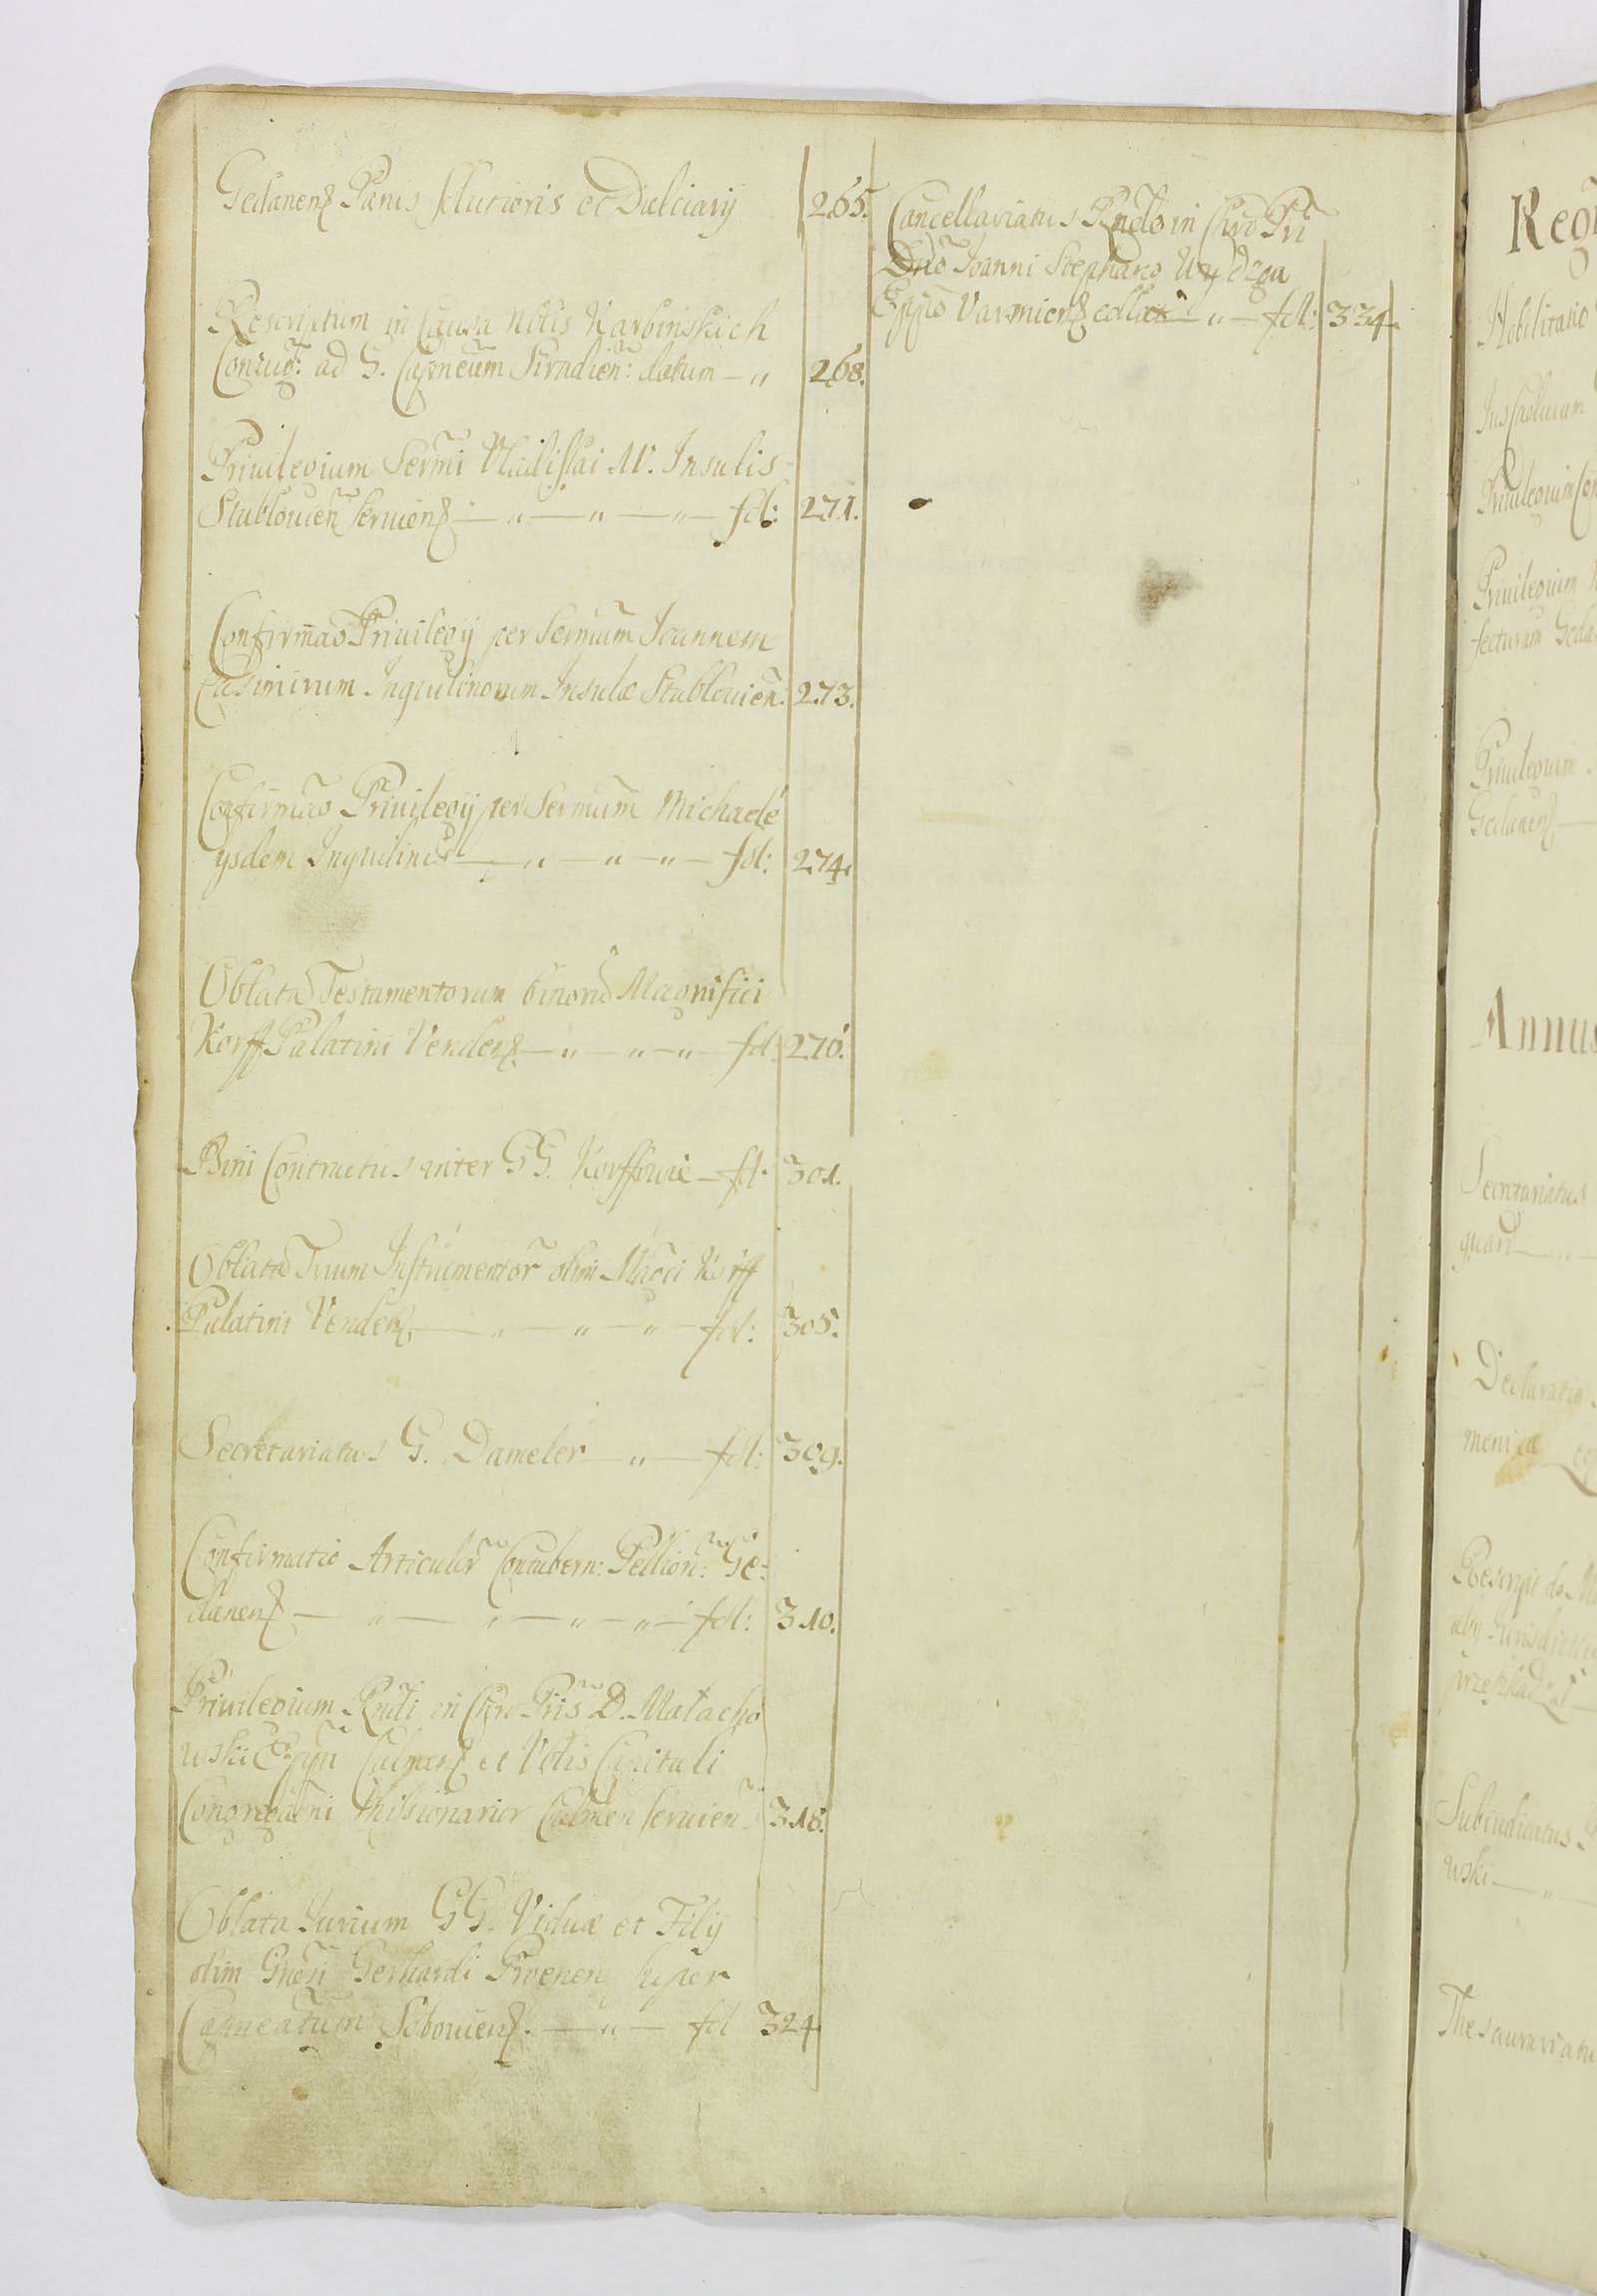 Gedanens Panis fluioris et Dulciarÿ 265.
Rescriptum in Causa Nblis Karbinskich
Coniug: ad G. Capneum Siradien: datum — „ 268.
Priuilegium Sermi Vladislai IV. Insulis
Stublouien seruiens — „ — „ — „ — fol: 271.
Confirmao Priuilegÿ per Sermum Joannem
Casimirum Inquilinorum Insulæ Stublouien. 273.
Confirmao Priuilegÿ per Sermum Michaele
ÿsdem Inquilinis — „ — „ — „ — fol: 274.
Oblata Testamentorum binoru Magnifici
Korff Palatini Vendens. — „ — „ — „ — fol. 276.
Bini Contractus inter GG. Korffowie — fol. 301.
Oblata Trium Instrumentor olim Mgci Korff
Palatini Vendens — „ — „ — „ — fol: 305.
Secretariatus G. Dameler — „ — fol: 309.
Confirmatio Articulor Contubern: Pellion: Ge-
danens — „ — „ — „ — „ — fol: 310.
Priuilegium Rndi in Chro Pris D. Małacho
wski Eppi Culmens et Vblis Capituli
Congregaoni Missionarior Culmen seruien. 318.
Oblata Iurium GG. Viduæ et Filÿ
olim Gnosi Gerhardi Proenen super
Capneatum Sobouiens. — „ — fol 324.
Cancellariatus Rndo in Chro Pri
Dno Joanni Stephano Wydzga
Eppo Varmiens collat — „ — fol: 334.
Reg
Nobilitatio
Ius
Priuilegium Con
Priuilegium
fecturam Geda
Priuilegium
Gedanens —
Annus
Secretariatus
quart — „ —
Declaratio
menicæ
Rescript do M
aby Iurisdictio
przeszkadzal
Subiudicatus
wski — „ —
Thesaurariatu